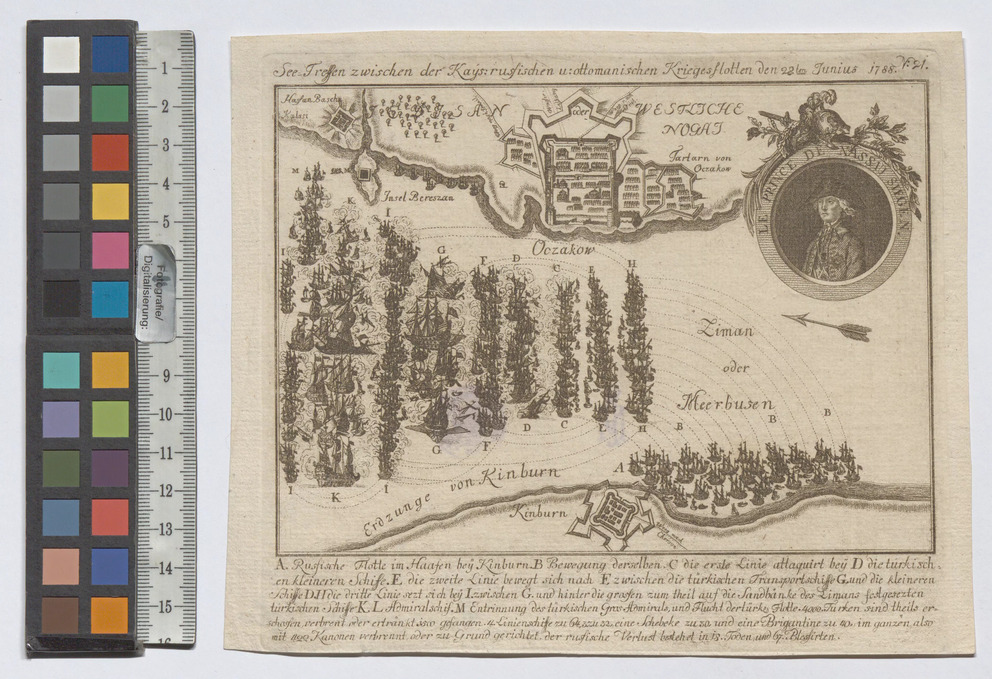 See-Treffen zwischen der Kays: russischen u: ottomanischen Kriegesflotten den 28ten Junius 1788.
Hassan Bascha
WESTLICHE
oder
NOGAI
Tartarn von
Oczakow
LE PRINCE DE NASSAU SIEGEN
Insel Beresan
Oczakow
M
K
I
G
F
D
C
E
H
Liman
oder
Meerbusen
B
B
B
G
F
D
C
E
H
A
I
K
I
Erdzunge von Kinburn
Kinburn
A. Russische Flotte im Haafen bey Kinburn. B Bewegung derselben. C die erste Linie attaquirt bey D die türkisch-
en kleineren Schife. E die zweite Linie bewegt sich nach E zwischen die türkischen Transportschiffe G. und die kleineren
Schiffe D. H die dritte Linie sezt sich bey I. zwischen G. und hinter die grossen zum theil auf die Sandbänke des Limans festgesezten
türkischen Schiffe K. L Admiralschif. M Entrinnung des türkischen Gros-Admirals, und Flucht der türk: Flotte. 4000 Türken sind theils er-
schossen, verbrent oder ertränkt gefangen. 4 Linienschiffe zu eine Schebeke zu 20. und eine Brigantine zu 40. im ganzen, also
mit Kanonen verbrennt, oder zu Grund gerichtet. der russische Verlust bestehet in 18. Toden, und 67. Blessirten.
Fotografie/
Digitalisierung:
1
2
3
4
5
9
10
11
12
13
14
15
16